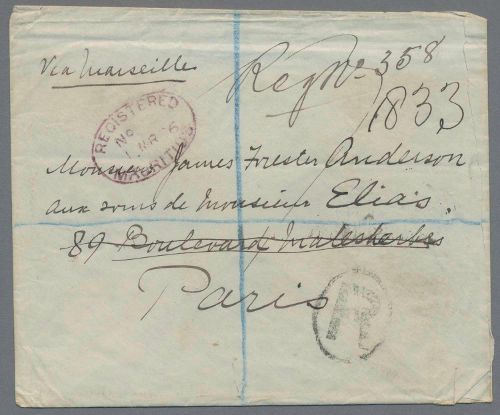 Via Marseille
Reg No. 358
1833
REGISTERED
No
MR 6
MAURITIUS
Monsieur James Forester Anderson
aux soins de Monsieur Elias.
89 Boulevard Malesherbes
Paris
R